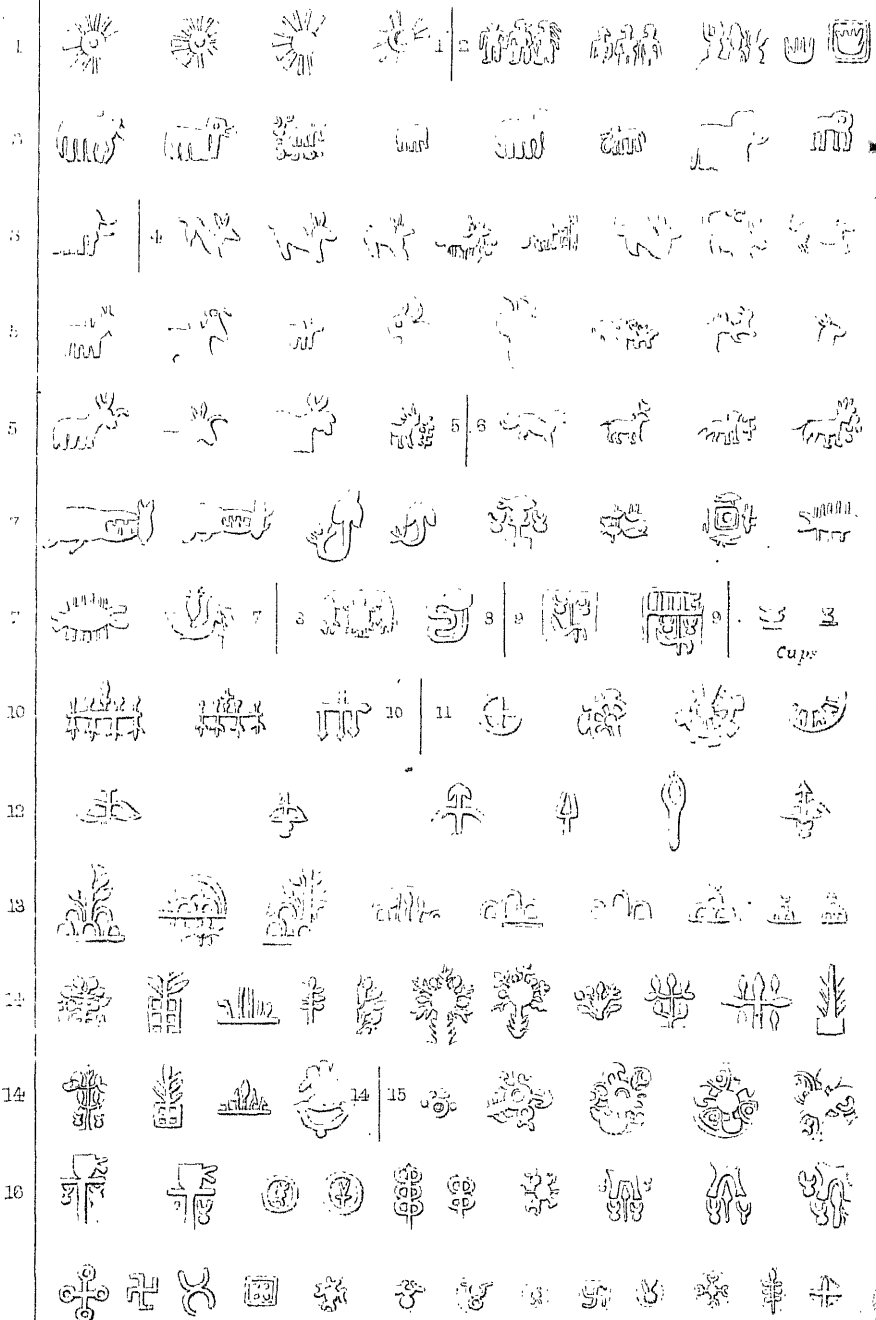 1 1 2
3
3 4
5
5 5 6
7
7 7 8 8 9 9
Cups
10 10 11
12
13
14
14 14 15
16